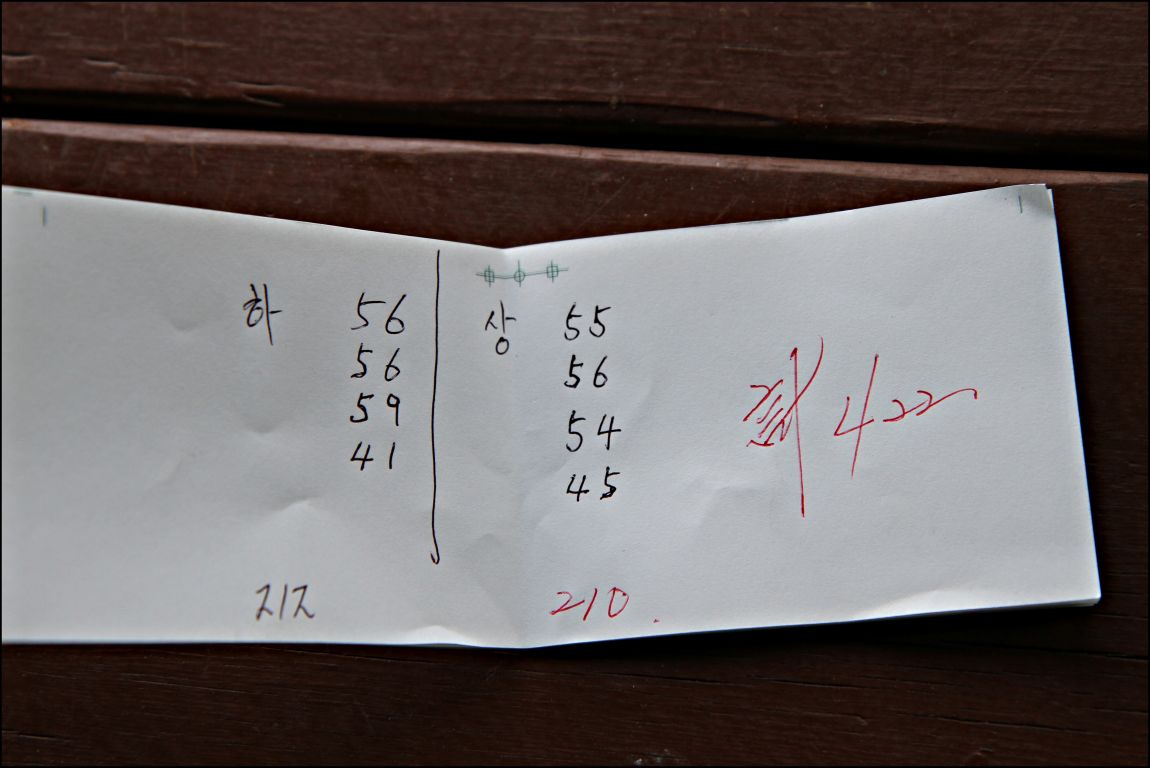 하 56
56
59
41
212
상 55
56
54
45
210.
계 422